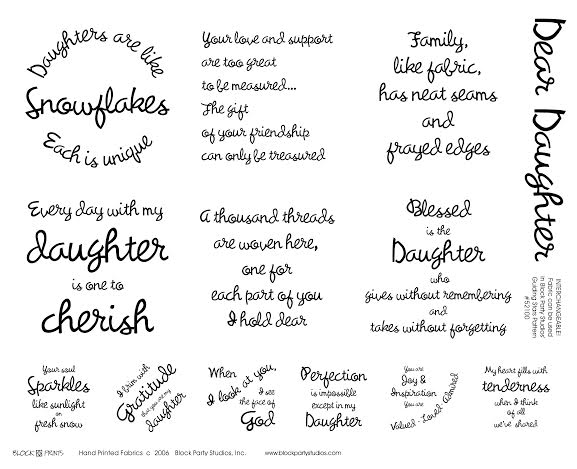 Daughters are like
Snowflakes
Each is unique
Your love and support
are too great
to be measured...
The gift
of your friendship
can only be treasured
Family,
like fabric,
has neat seams
and
frayed edges
Dear Daughter
Every day with my
daughter
is one to
cherish
A thousand threads
are woven here,
one for
each part of you
I hold dear
Blessed
is the
Daughter
who
gives without remembering
and
takes without forgetting
INTERCHANGEABLE!
Fabric can be used
in Block Party Studios'
Guiding Stars Pattern
#52100
Your soul
Sparkles
like sunlight
on
fresh snow
I brim with
Gratitude
that you are my
daughter
When
I look at you,
I see
the face of
God
Perfection
is impossible
except in my
Daughter
You are
Joy &
Inspiration
You are
Valued - Loved - Admired
My heart fills with
tenderness
when I think
of all
we've shared
BLOCK PRINTS Hand Printed Fabrics c 2006 Block Party Studios, Inc. www.blockpartystudios.com